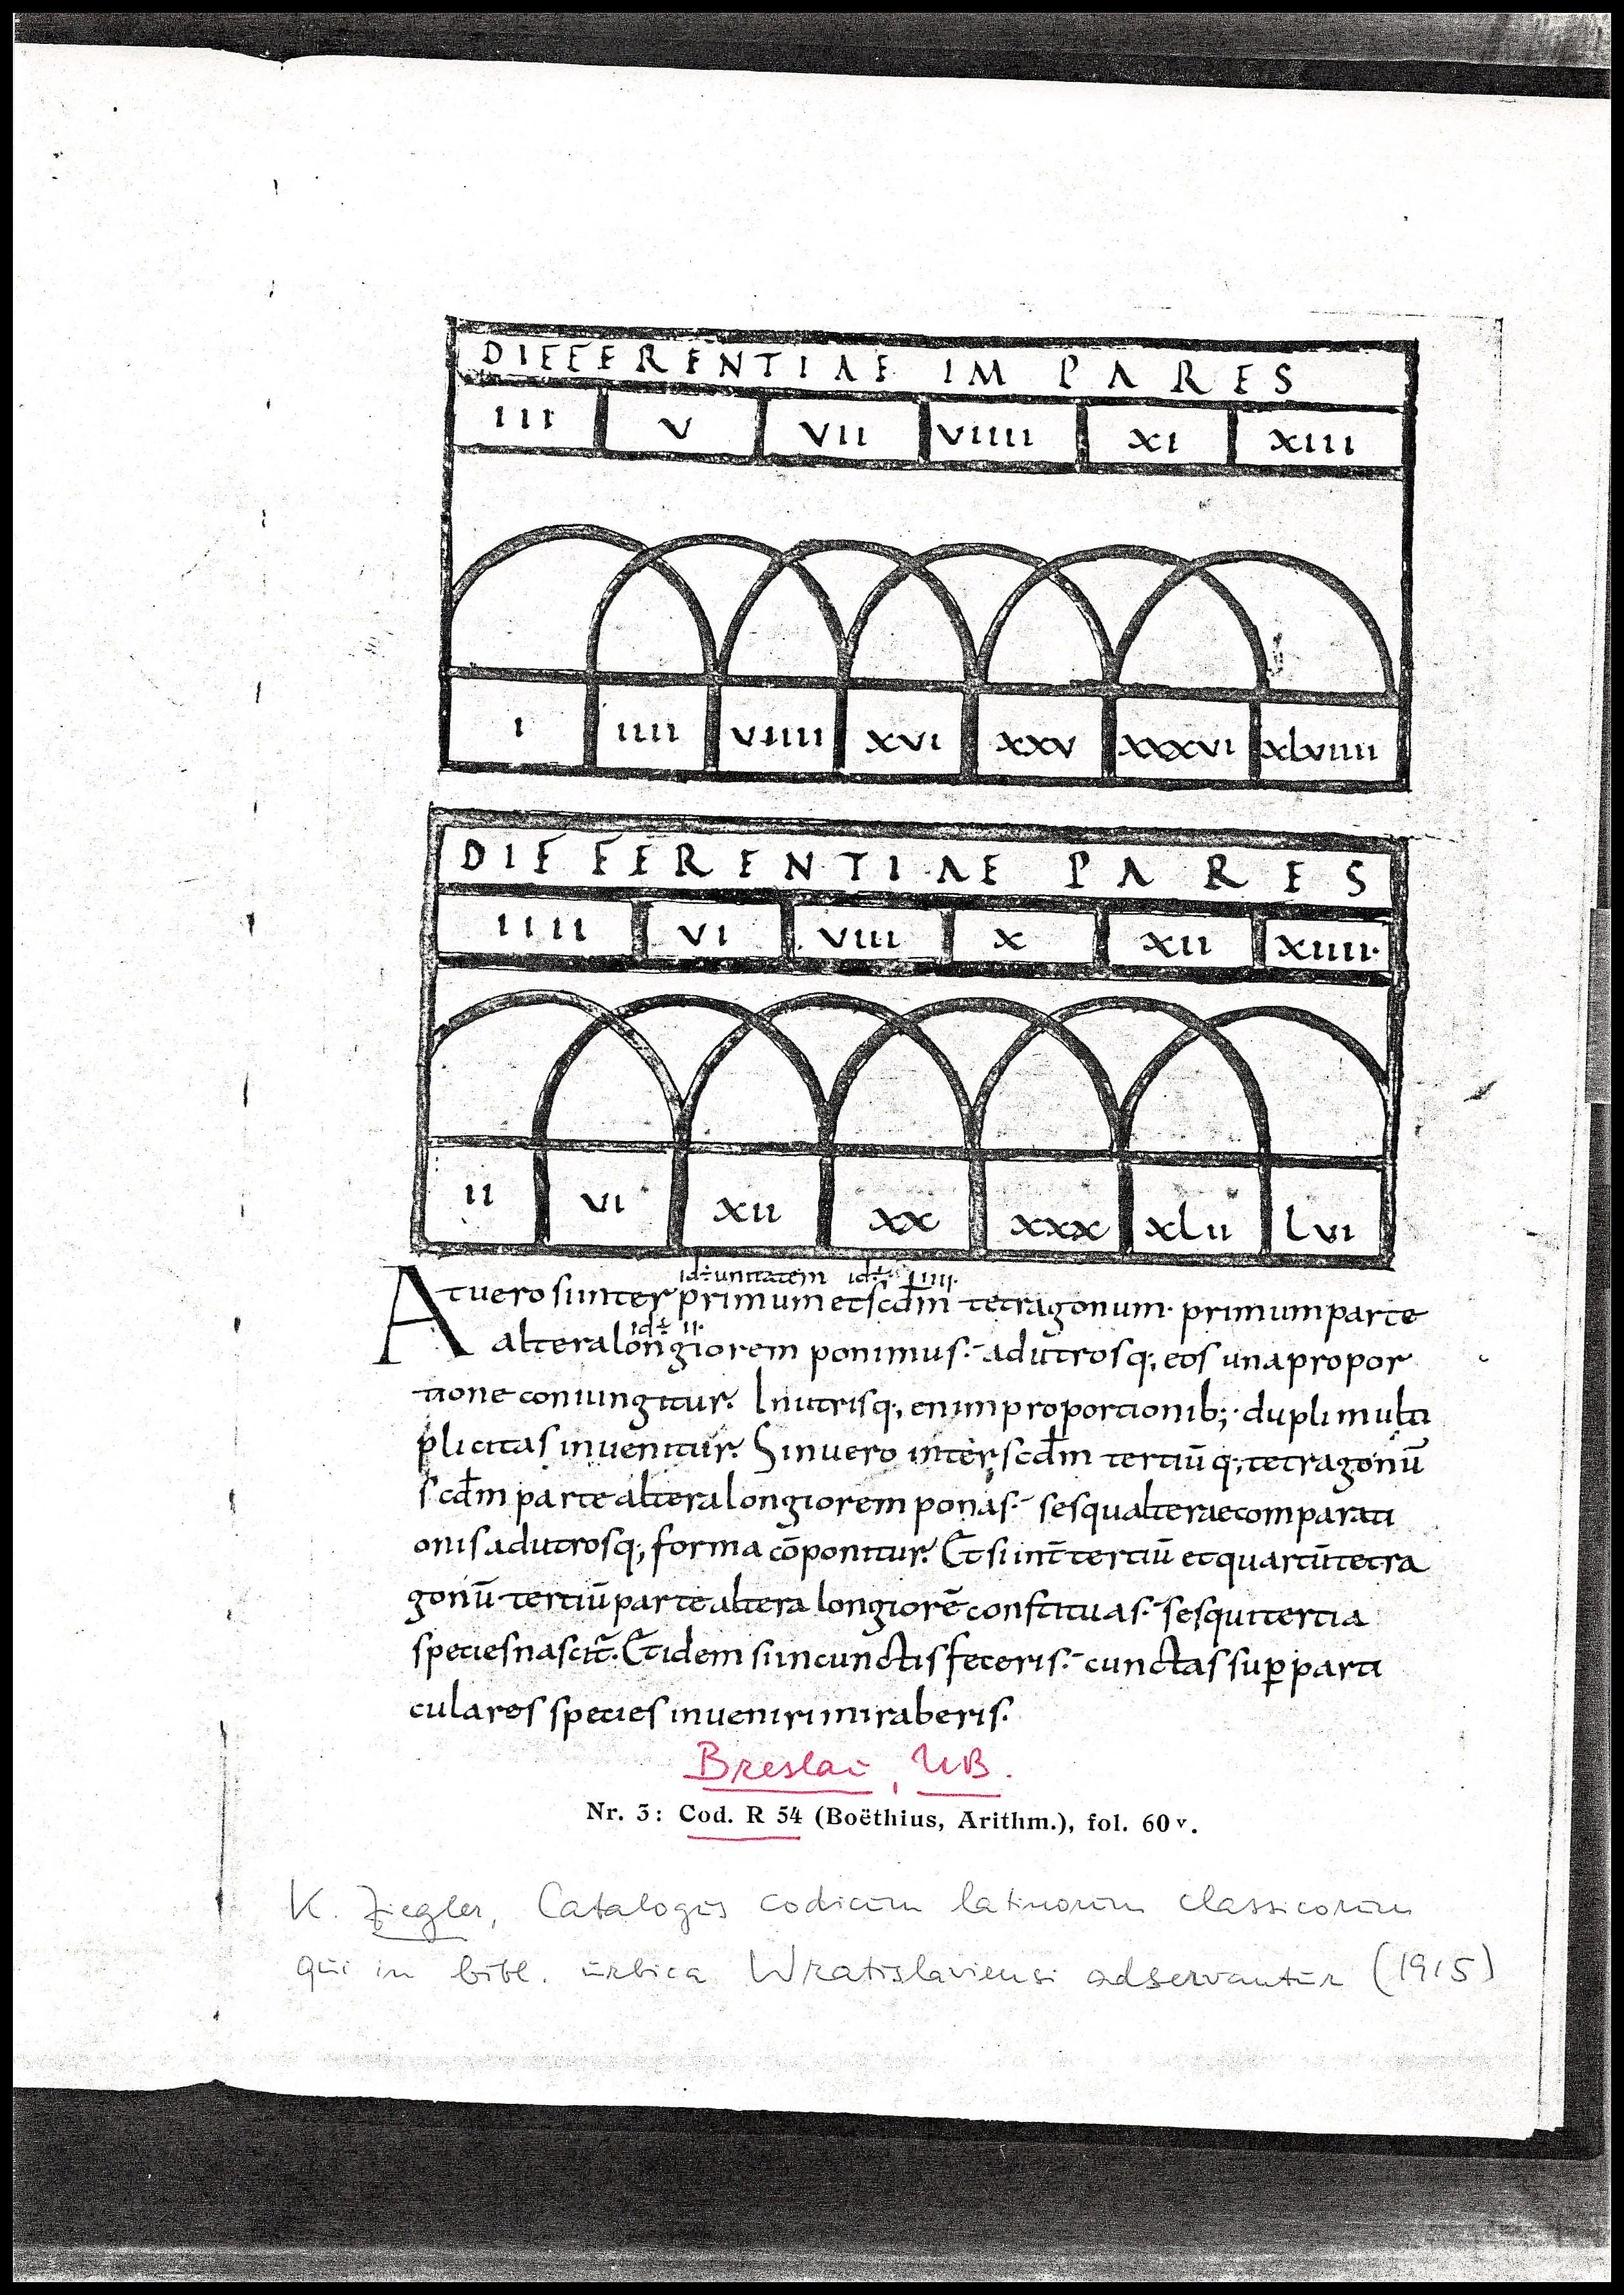 DIFFERENTIAE IMPARES
III V VII VIIII XI XIII
I IIII VIIII XVI XXV XXXVI XLVIIII
DIFFERENTIAE PARES
IIII VI VIII X XII XIIII·
II VI XII XX XXX XLII LVI
id ÷ unitatem id ÷ IIII·
At vero si inter primum et scdm tetragonum· primum parte
id ÷ II·
altera longiorem ponimus· ad utrosq; eos una propor
tione coniungitur. In utrisq; enim proportionib; · dupli multi
plicitas invenitur. Sin vero inter scdm tertiū q; tetragonū
scdm parte altera longiorem ponas· sesqualterae comparati
onis ad utrosq; forma cōponitur. Et si int̄ tertiū et quartū tetra
gonū tertiū parte altera longiorē constituas· sesquitertia
species nascit̃. Et idem si in cunctis feceris· cunctas sup̱parti
culares species inveniri miraberis·
Breslau, UB.
Nr. 3: Cod. R 54 (Boëthius, Arithm.), fol. 60v.
K. Ziegler, Catalogus codicum latinorum classicorum
qui in bibl. urbica Wratislaviensi adservantur (1915)